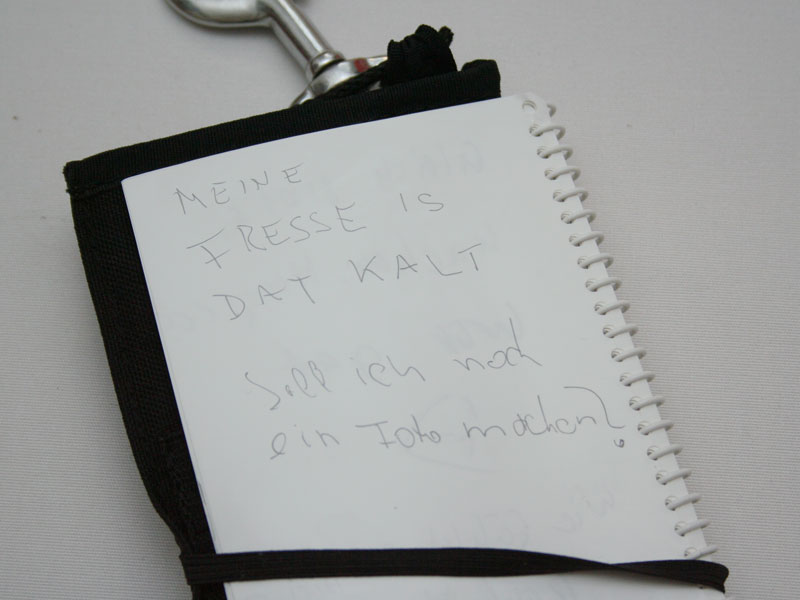 MEINE
FRESSE IS
DAT KALT
Soll ich noch
ein Foto machen?